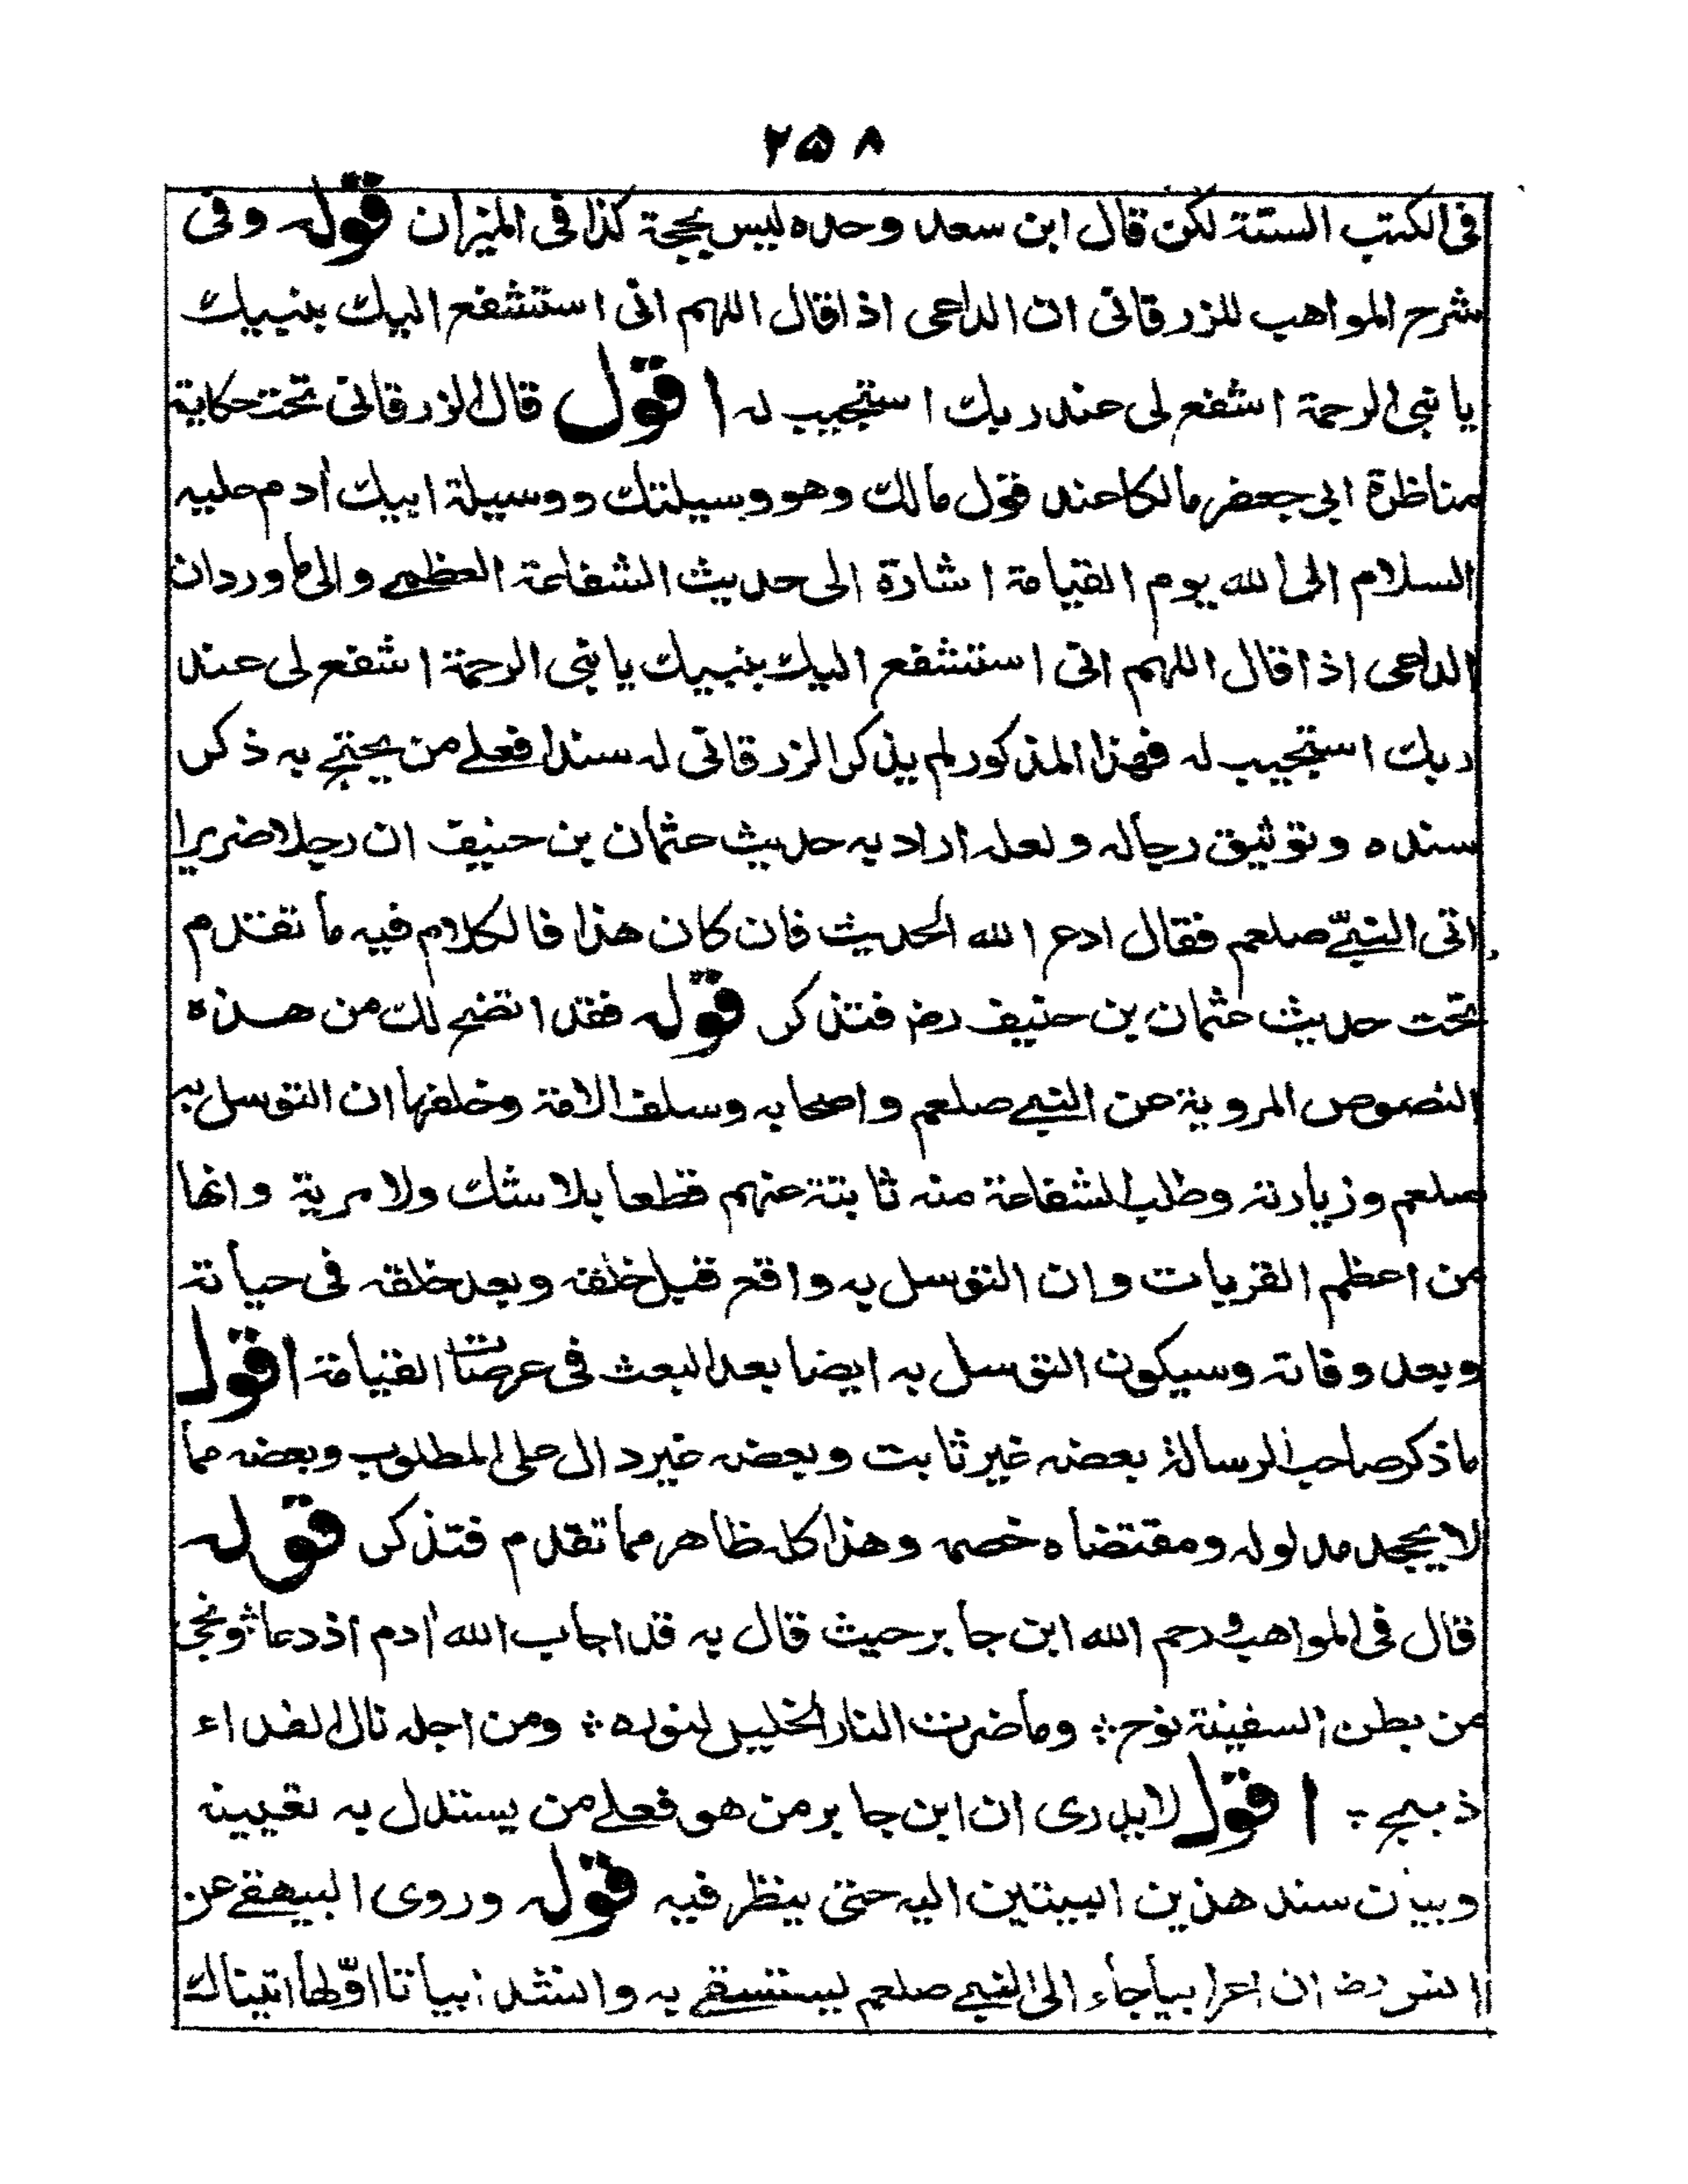 ٢٥٨
فى الكتب الستة لكن قال ابن سعد وحده ليس بحجة كذا فى الميزان قوله وفى
شرح المواهب للزرقانى ان الداعى اذا قال اللهم انى استشفع اليك بنبيك
يا نبى الرحمة اشفع لى عند ربك استجيب له اقول قال الزرقانى تحت حكاية
مناظرة ابى جعفر مالكا عند قول مالك وهو وسيلتك ووسيلة ابيك اٰدم عليه
السلام الى الله يوم القيامة اشارة الى حديث الشفاعة العظمى والى ما ورد ان
الداعى اذا قال اللهم انى استشفع اليك بنبيك يا نبى الرحمة اشفع لى عند
ربك استجيب له فهذا المذكور لم يذكر الزرقانى له سندا فعلى من يحتج به ذكر
سنده وتوثيق رجاله ولعله اراد به حديث عثمان بن حنيف ان رجلا ضريرا
اتى النبىّ صلعم فقال ادع الله الحديث فان كان هذا فالكلام فيه ما تقدم
تحت حديث عثمان بن حنيف رضـ فتذكر قوله فقد اتضح لك من هذه
النصوص المروية عن النبى صلعم واصحابه وسلف الامة وخلفها ان التوسل به
صلعم وزيارته وطلب الشفاعة منه ثابتة عنهم قطعا بلا شك ولا مرية وانها
من اعظم القربات وان التوسل به واقع قبل خلقه وبعد خلقه فى حياته
وبعد وفاته وسيكون التوسل به ايضا بعد البعث فى عرصات القيامة اقول
ما ذكر صاحب الرسالة بعضه غير ثابت وبعضه غير دال على المطلوب وبعضه مما
لا يجحد مدلوله ومقتضاه خصمه وهذا كله ظاهر مما تقدم فتذكر قوله
قال فى المواهب ورحم الله ابن جابر حيث قال به قد اجاب الله اٰدم اذ دعا ؞ ونجى
من بطن السفينة نوح ؞ وما ضرت النار الخليل لنوره ؞ ومن اجله نال الفداء
ذبيح ؞ اقول لا يدرى ان ابن جابر من هو فعلى من يستدل به تعيينه
وبيان سند هذين البيتين اليه حتى ينظر فيه قوله وروى البيهقى عن
انس رضـ ان اعرابيا جاء الى النبى صلعم يستسقى به وانشد ابياتا اوّلها اتيناك